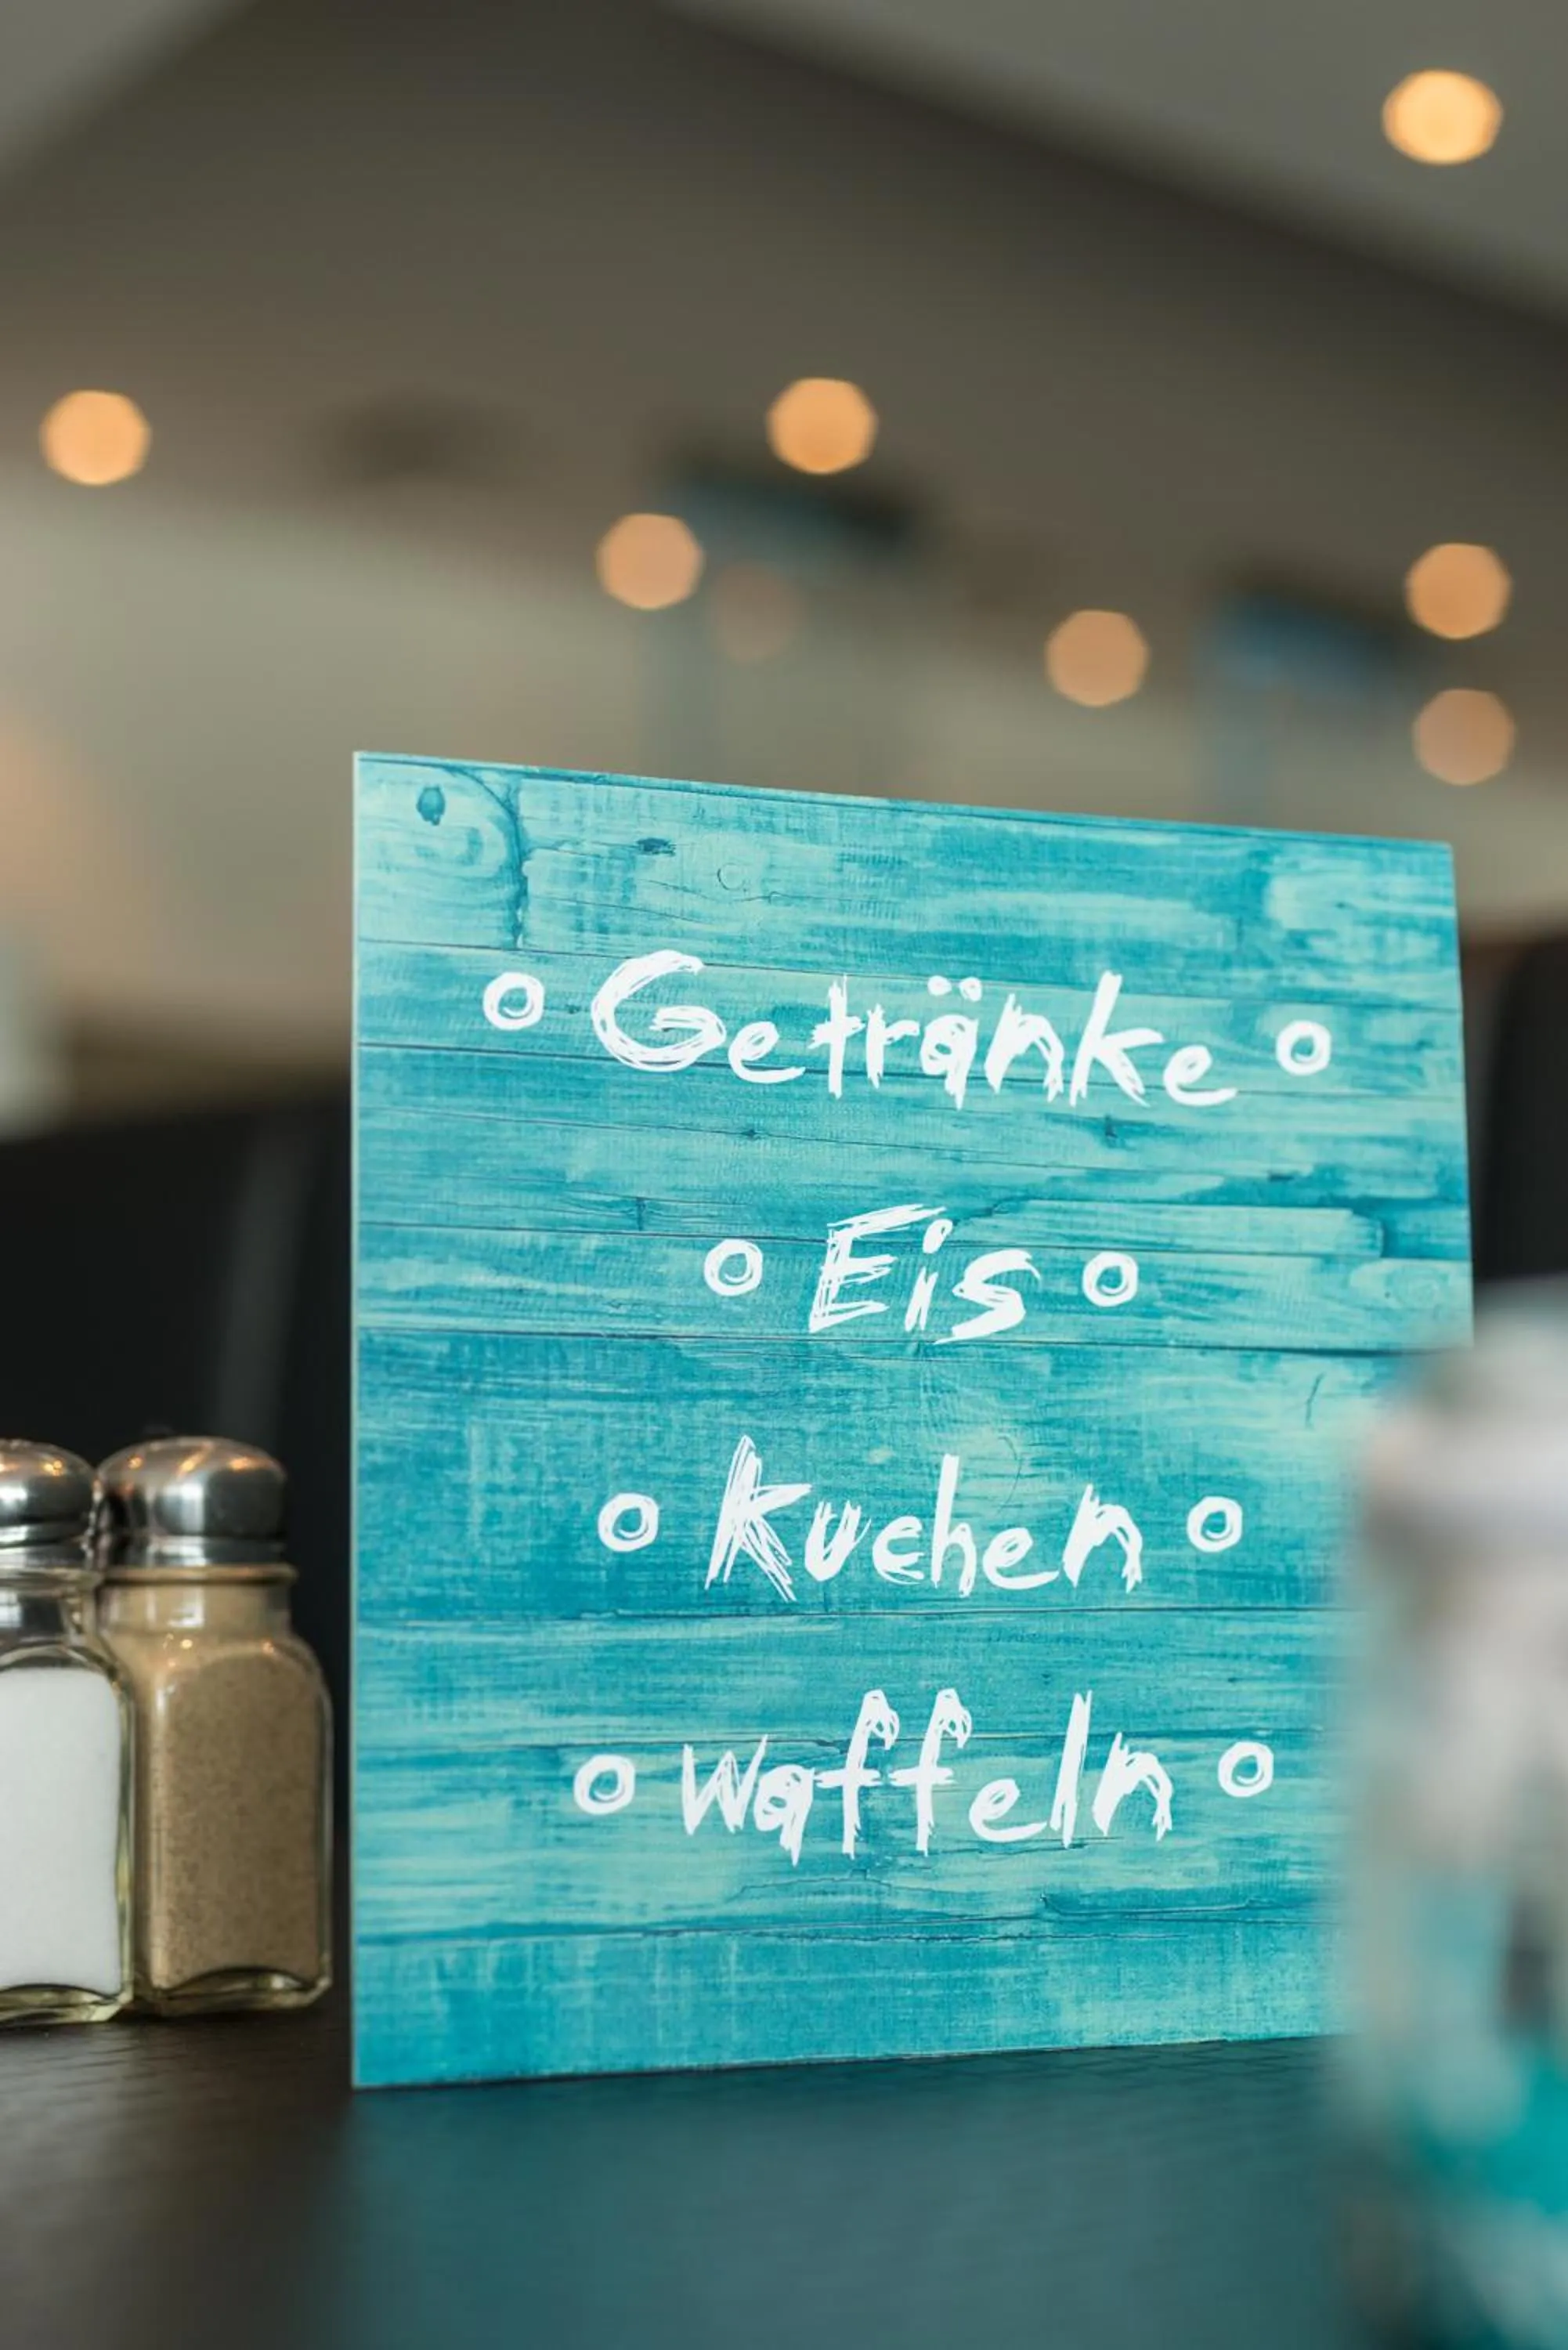 ° Getränke °
° Eis °
° Kuchen °
° Waffeln °